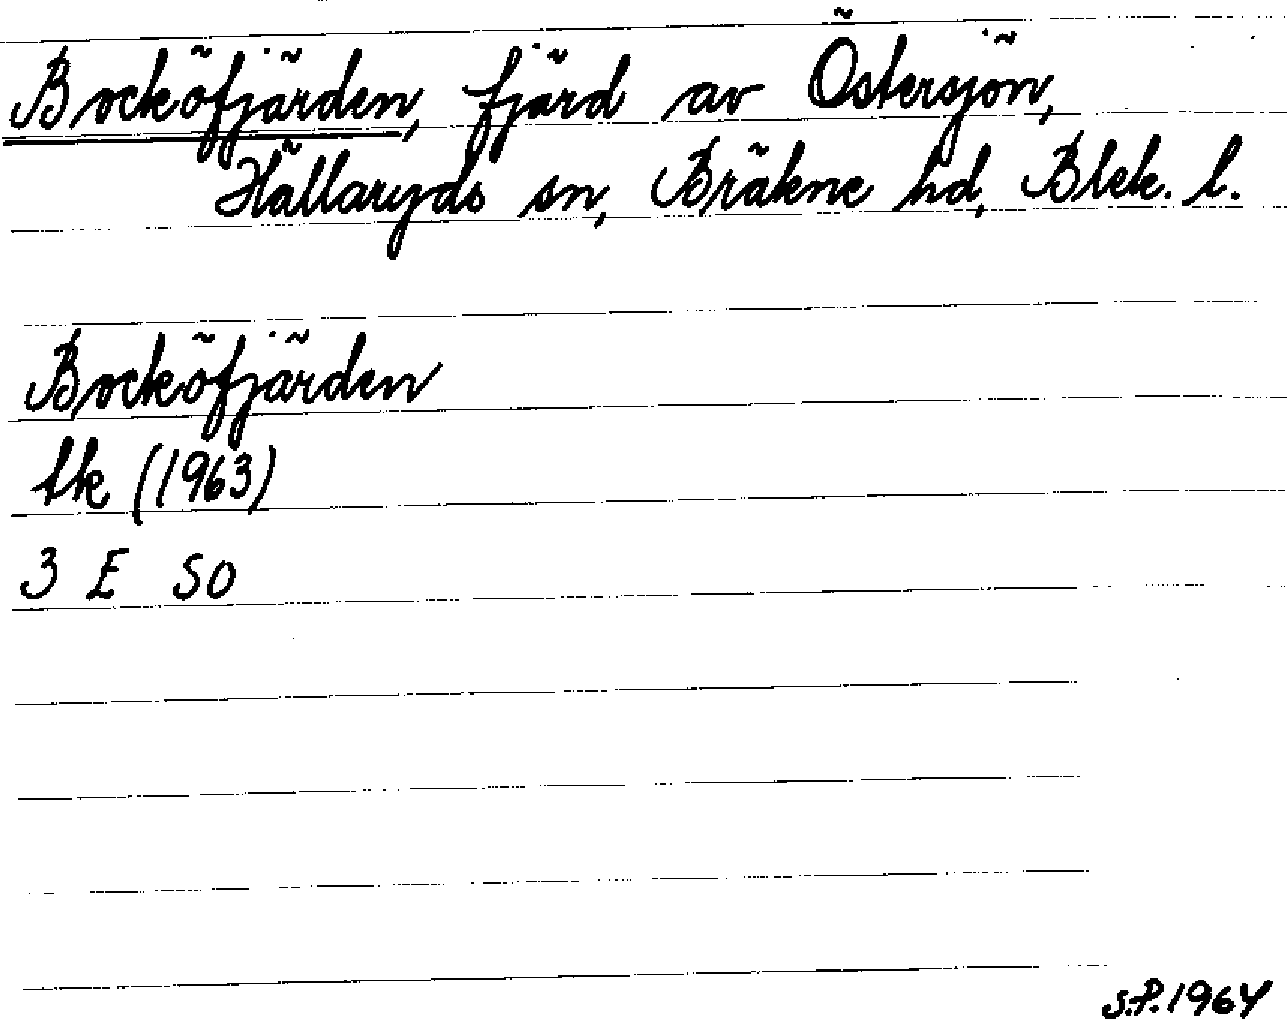 Bocköfjärden, fjärd av Östersjön,
Hällaryds sn, Bräkne hd, Blek. l.
Bocköfjärden
tk (1963)
3 E SO
S.P. 1964